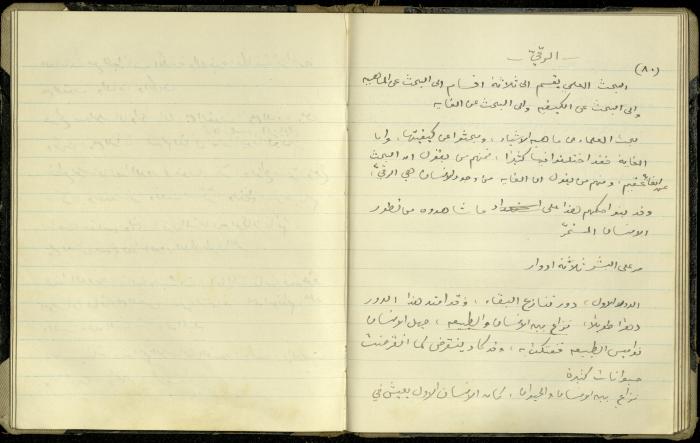 (٨٠)
- الرقيّ -
البحث العلمي يقسم الى ثلاثة اقسام الى البحث عن الماهيه
والى البحث عن الكيفيه والى البحث عن الغايه
بحث العلماء عن ماهية الاشياء، وبحثوا عن كيفيتها، واما
الغاية فقد اختلفوا فيها كثيرًا، فمنهم من يقول ان البحث
عن الغاية عقيم، ومنهم من يقول ان الغايه من وجود الانسان هي الرقيّ،
وقد بنوا حكمهم هذا على ما شاهدوه من تطور
الانسان المستمرّ
مر على البشر ثلاثة ادوار
الدور الاول، دور تنازع البقاء، وقد امتد هذا الدور
دهرًا طويلًا، نزاع بين الانسان والطبيعه، جهل الانسان
نواميس الطبيعه ففتكت به، وقد كاد ينقرض كما انقرضت
حيوانات كثيرة
نزاع بين الانسان والحيوان، كان الانسان الاول يعيش في